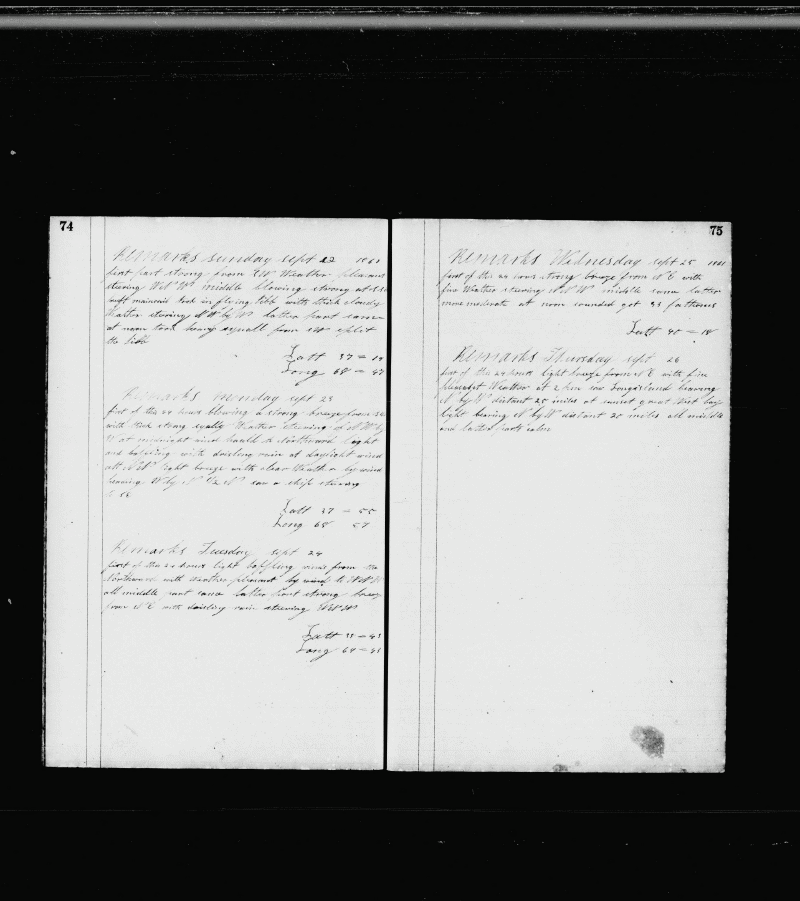 74
Remarks Sunday Sept 22
first part strong from SW Weather pleasant
steering middle blowing strong at
took in flying Jibb with thick cloudy
Weather steering NW by W latter part same
at noon took heavy squall from split
the Jibb
Latt 37 = 19
Long 68 = 47
Remarks Monday Sept 23
first of the 24 hours blowing a strong breeze from
with thick Weather steering NW by
W at midnight wind Northward light
and baffling with drisling rain at daylight wind
all light breeze with clear Weather by wind
heading W by N 1/2 N saw a ship steering
Latt 37 = 55
Long 68 57
Remarks Tuesday Sept 24
first of the 24 hours light baffling wind from the
Northward with Weather pleasant by wind to
all middle part same latter part strong breeze
from NE with drisling rain steering
Latt
Long
75
Remarks Wednesday Sept 25
first of the 24 hours strong breeze from NE with
fine Weather steering NNW middle same latter
more moderate at noon sounded got 33 fathoms
Latt 40 = 18
Remarks Thursday Sept 26
first of the 24 hours light breeze from NE with fine
pleasant Weather at 2 saw Longisland bearing
N by W distant 25 miles at sunset great West bay
light bearing N by W distant 20 miles all middle
and latter parts calm